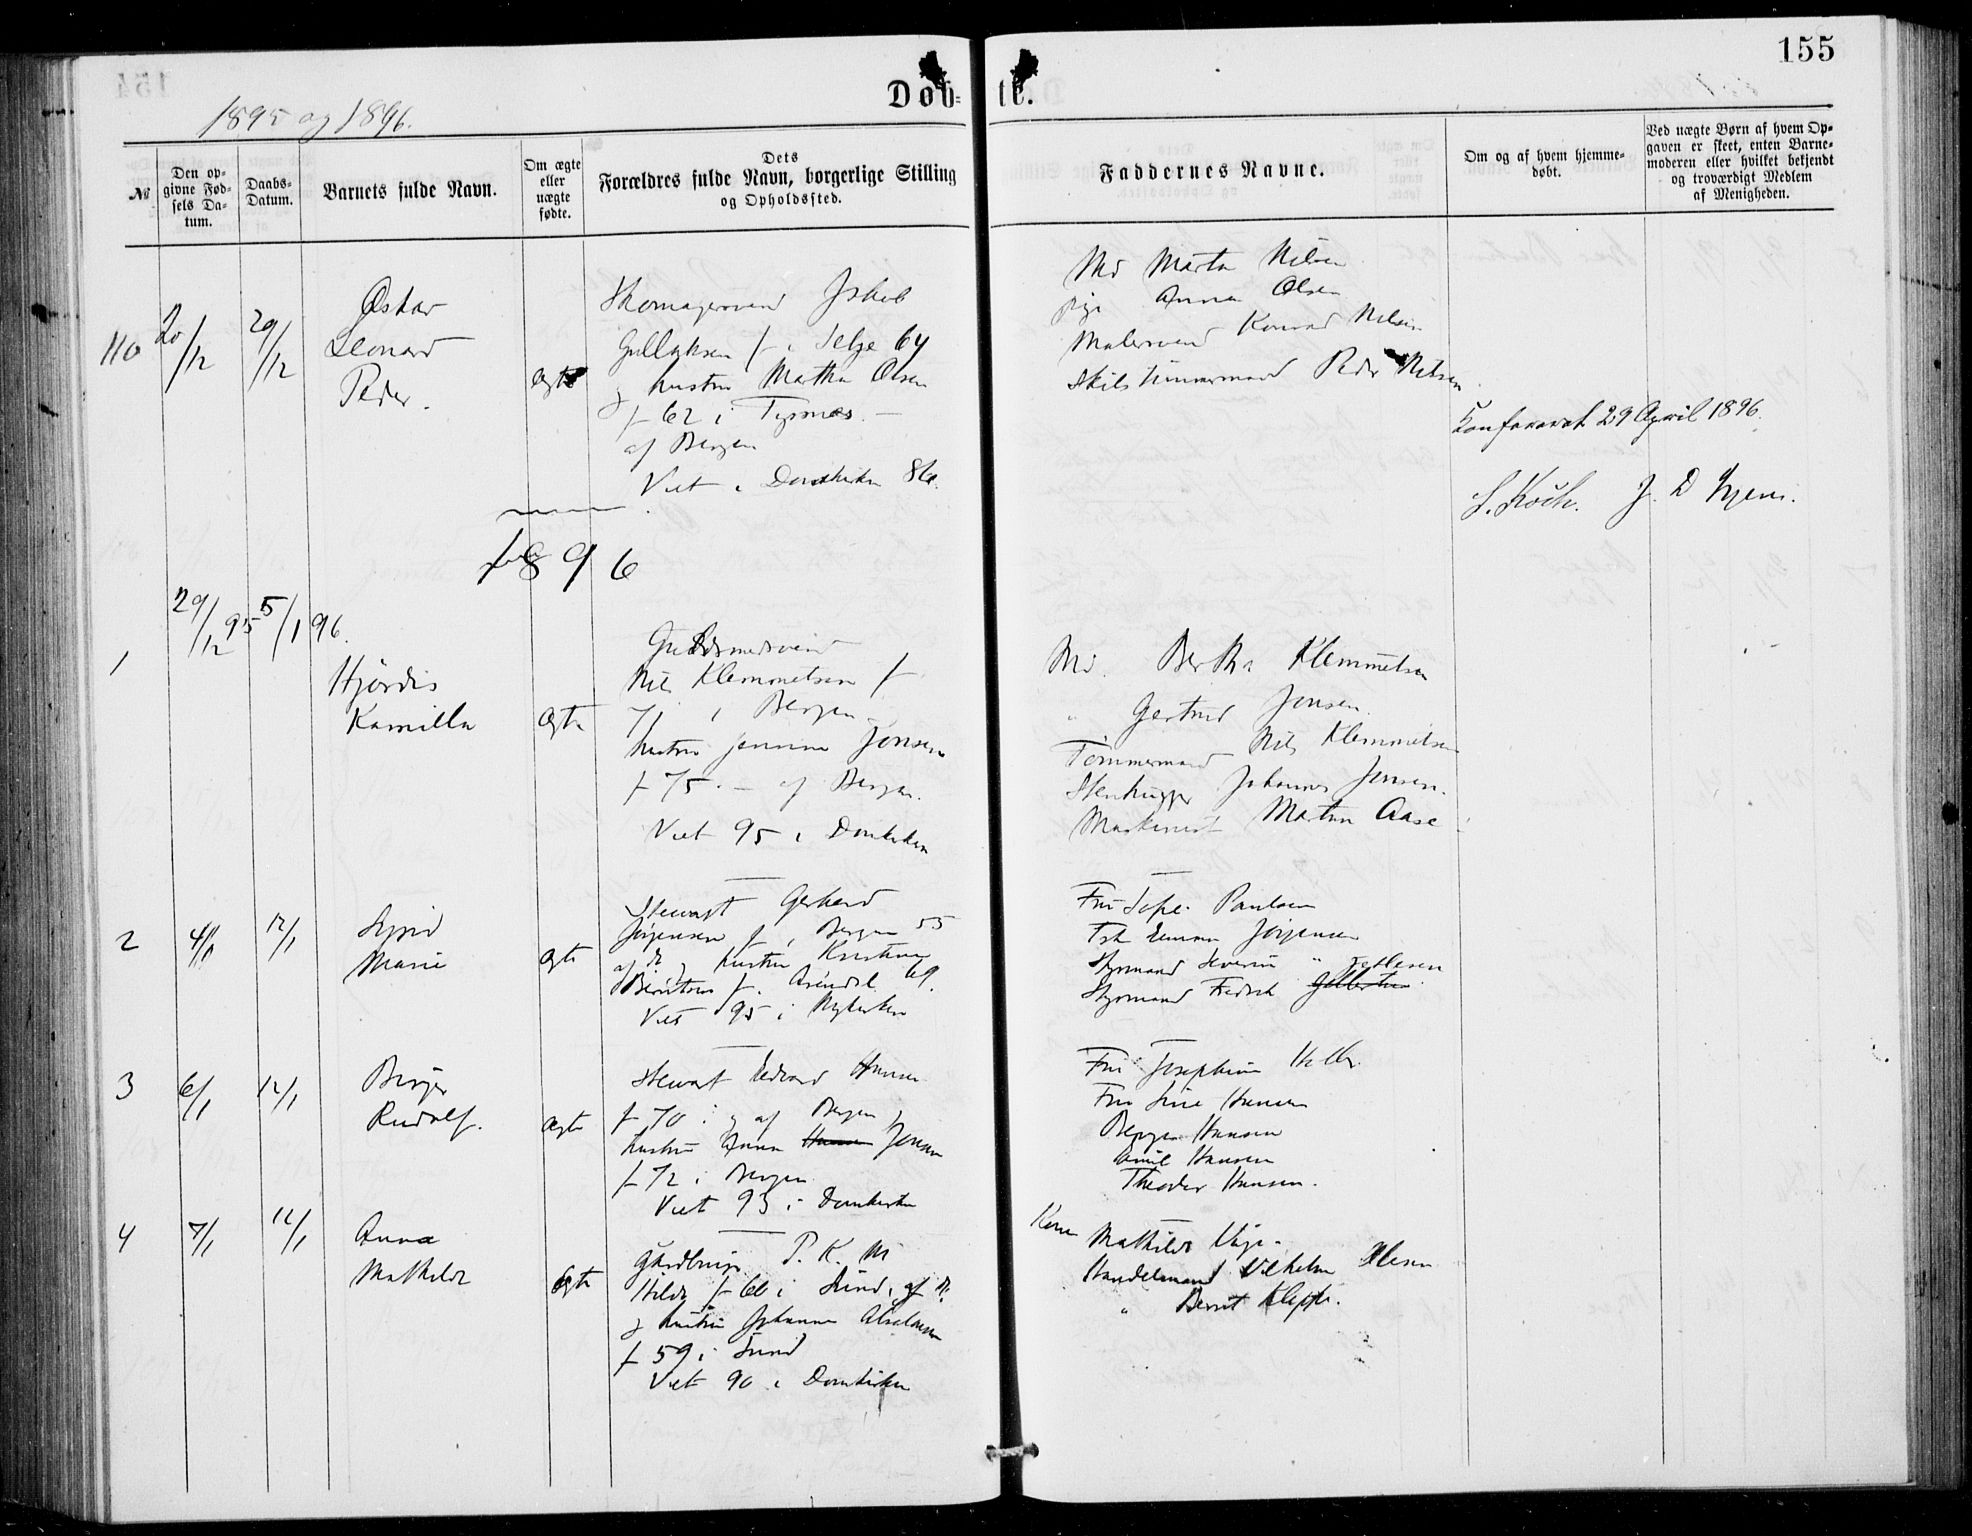 155
Døb- te.
1895 og 1896.
№
Den op-
givne Fød-
sels Da-
tum.
Daabs-
Datum.
Barnets fulde Navn.
Om ægte
eller
uægte
fødte.
Dets
Forældres fulde Navn, borgerlige Stilling
og Opholdssted.
Faddernes Navne.
Om og af hvem hjemme-
døbt.
Ved uægte Børn af hvem Op-
gaven er skeet, enten Barne-
moderen eller hvilket bekjendt
og troværdigt Medlem
af Menigheden.
110
20/12
29/12
Oskar
Leonard
Peder.
ægte
Skomagersvend Jakob
Gullaksen f i 64
og hustru Martha Olsen
f 62 i Tysnæs -
af Bergen
Viet i Domkirken 86.
Md Marta Nilsen
pige Anna Olsen
Malersvend Konrad Nilsen
Skibstømmermand Peder Nilsen
Konfereret 29 April 1896.
S. Koch. J. D
1896
1
29/12 95
5/1 96.
Hjørdis
Kamilla
ægte
Guldsmedsvend
Nils Klemmetsen f
71 i Bergen -
hustru Jensine Jonsen
f 75. - af Bergen.
Viet 95 i Domkirken
Md. Bertha Klemmetsen
" Gertrud Jensen.
Tømmermand Nils Klemmetsen
Stenhugger Johannes Jensen.
Maskinist Martin Aase
2
4/1
12/1
Sigrid
Marie
ægte
Stewart Gerhard
Jørgensen f i Bergen 55
af do og hustru Kristine
Berntsen f. Arendal 69.
Viet 95 i Nykirken
Fru Sofie Paulsen
Frk Emma Jørgensen
Styrmand Severin "
Styrmand Fredrik
3
6/1
12/1
Birger
Rudolf.
ægte
Stewart Edvard Hansen
f 70 i og af Bergen
hustru Anna Hansen Jensen
f 72 i Bergen
Viet 93 i Domkirken
Fru Josephine
Fru Line Hansen
Hansen
Emil Hansen
Theodor Hansen.
4
7/1
12/1
Anna
Mathilde
ægte
Gårdbruger P. K. M
Hilde f 60 i Sund, af do.
og hustru Johanna
f 59 i Sund
Viet 90 i Domkirken
Kone Mathilde
Handelsmand Vilhelm Olsen
" Bernt Kleppe.